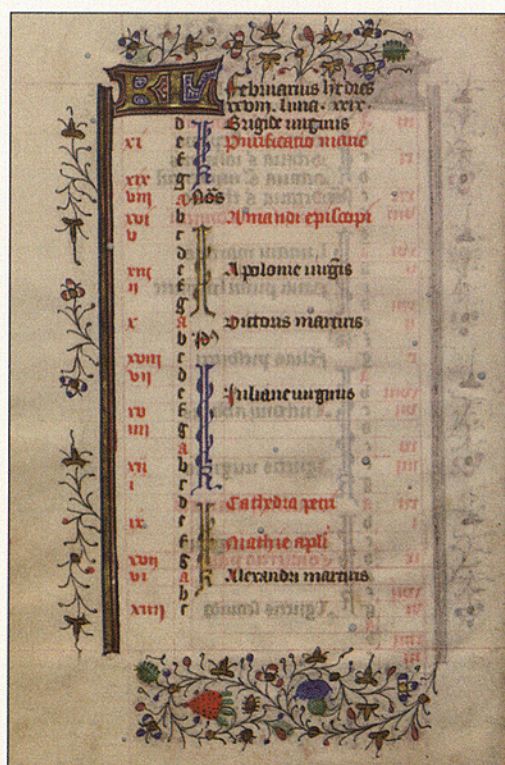 KL Februarius h̄t dies
xxviij. luna. xxix.
d Brigide virginis
xi e Purificatio marie
f
xix g
viij a Nōs
xvi b Amandi episcopi
v c
d
xiij e Apolonie virgīs
ij f
g
x a Victoris martiris
b Id'
xviij c
vij d
e Juliane virginis
xv f
iiij g
a
xij b
i c
d Cathedra petri
ix e
f Mathie apłi
xvij g
vi a Alexandri martiris
b
xiiij c